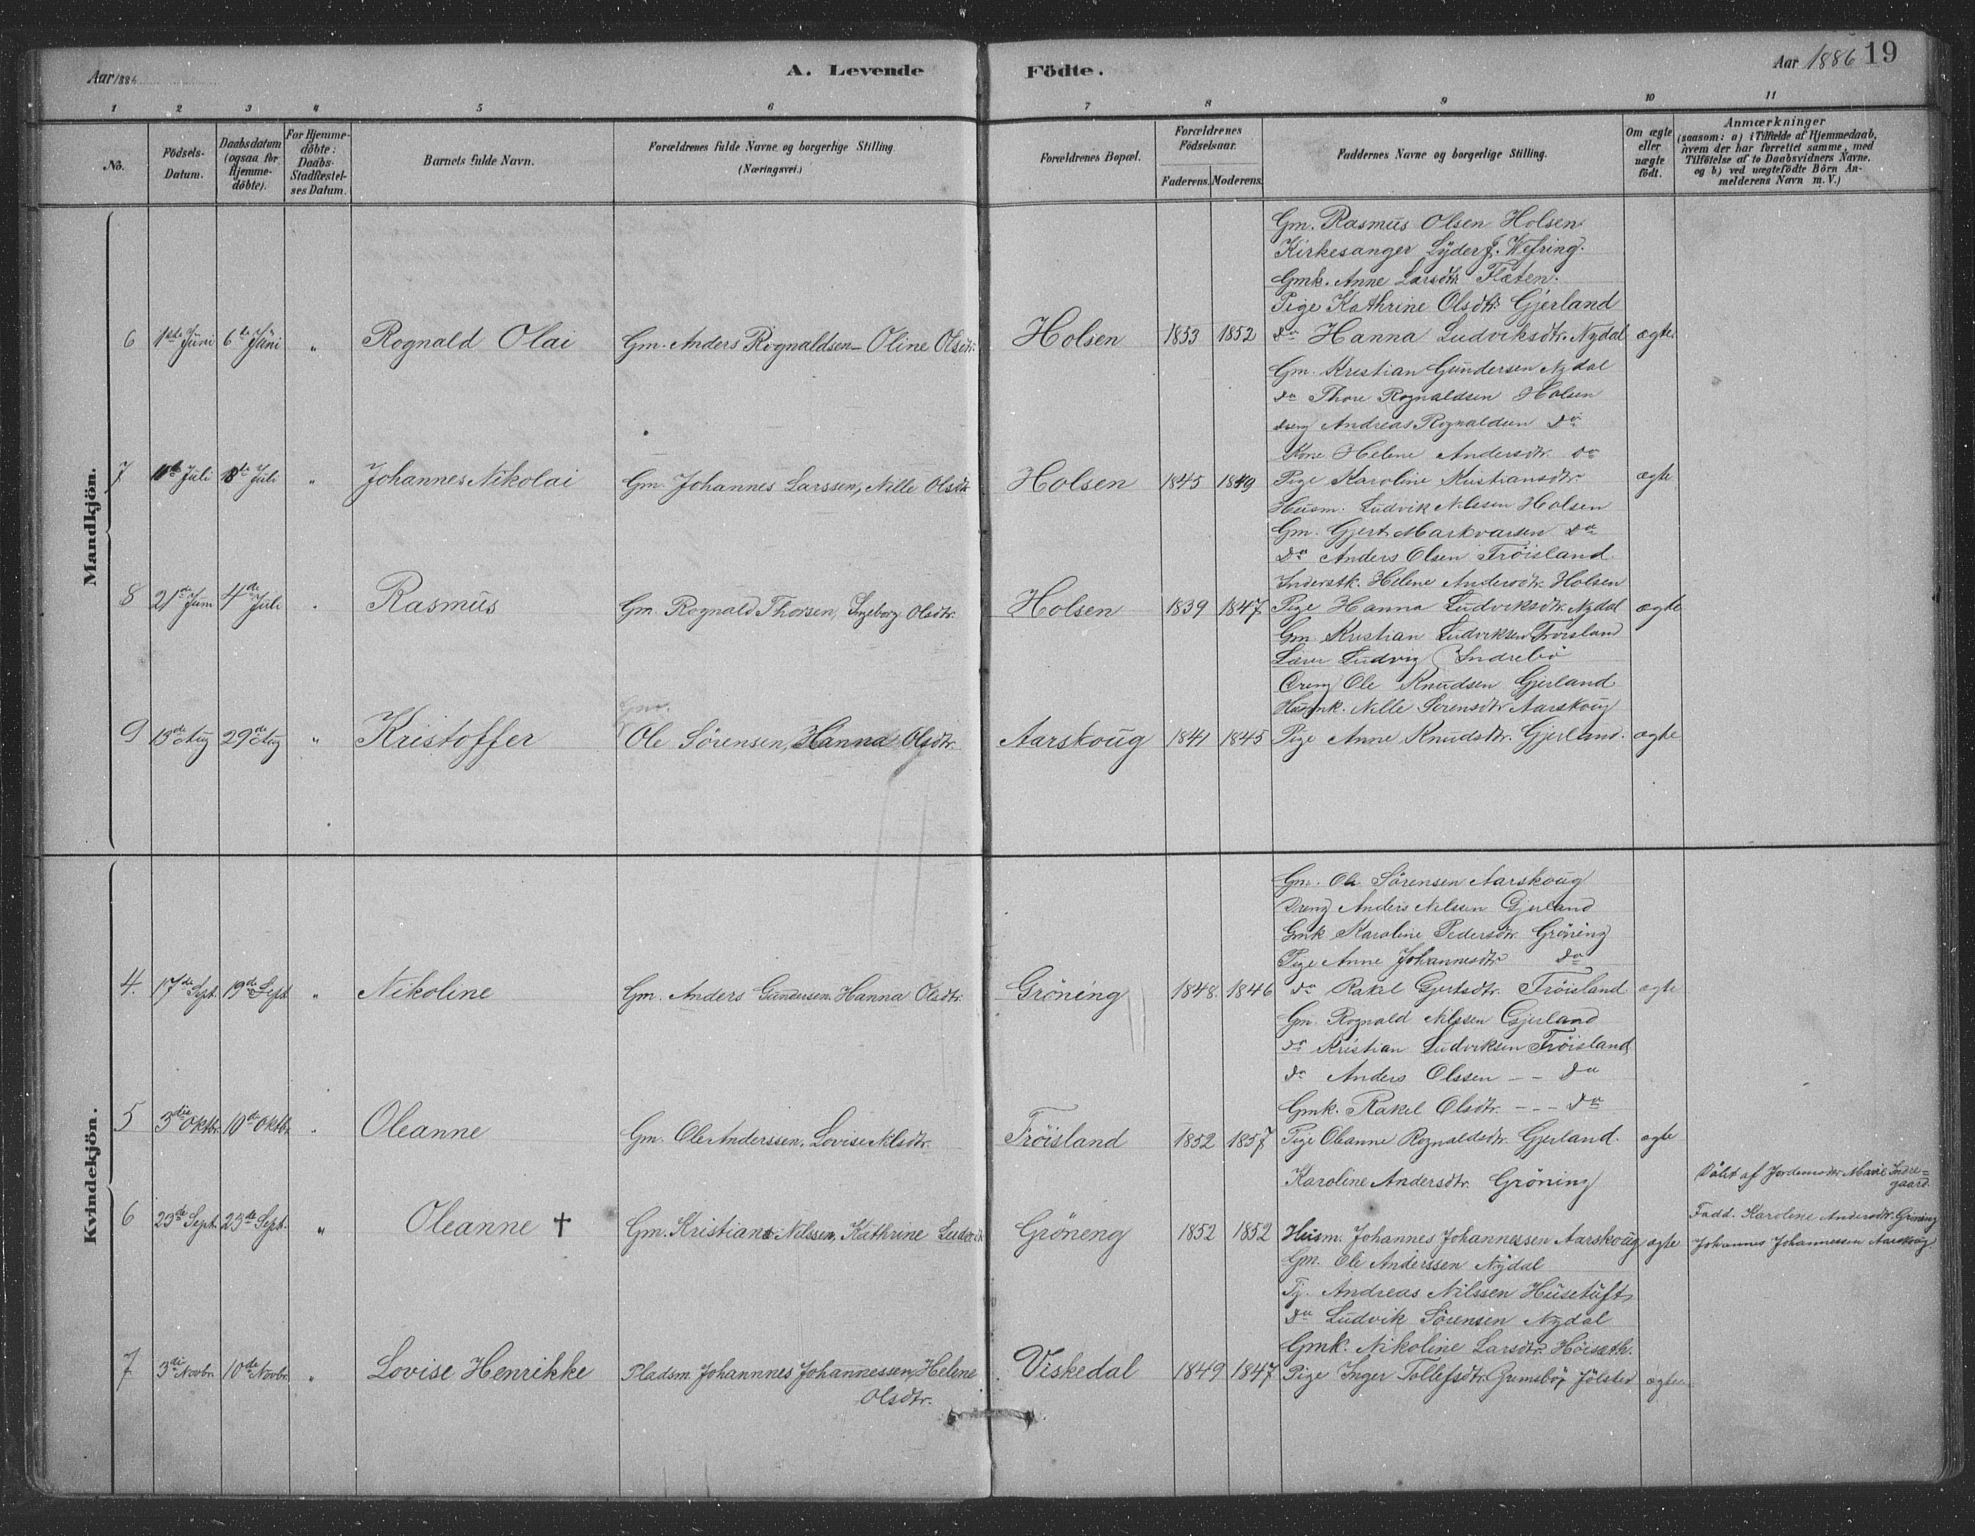 Aar 1886
A. Levende Födte.
Aar 1886 19
1 2 3 4 5 6 7 8 9 10 11
No.
Födsels-Datum.
Daabsdatum (ogsaa for Hjemmedöbte).
For Hjemmedöbte: Daabs-Stadfæstelses Datum.
Barnets fulde Navn.
Forældrenes fulde Navne og borgerlige Stilling (Næringsvei.)
Forældrenes Bopæl.
Forældrenes Födselsaar.
Faderens. Moderens.
Faddernes Navne og borgerlige Stilling.
Om ægte eller uægte født.
Anmærkninger
(saasom: a) i Tilfælde af Hjemmedaab, hvem der har forrettet samme, med Tilföielse af to Daabsvidners Navne. og b) ved uægtefödte Börn Anmelderens Navn m. V.)
Mandkjön.
Gm. Rasmus Olsen Holsen
Kirkesanger Lyder J. Wefring.
Gmk. Anne Larsdtr. Flaten.
Pige Kathrine Olsdtr. Gjerland
6 1ste Juni 6te Juni " Rognald Olai Gm. Anders Rognaldsen - Oline Olsdtr. Holsen 1853 1852 do Hanna Ludviksdtr. Nydal ægte
Gm. Kristian Gundersen Nydal
do Thore Rognaldsen Holsen
dreng Andreas Rognaldsen do
Kone Helene Andersdtr. do
7 Juli Juli " Johannes Nikolai Gm. Johannes Larssen, Nille Olsdtr. Holsen 1845 1849 Pige Karoline Kristiansdtr. ægte
Husm. Ludvik Nilssen Holsen
Gm. Gjert Markvarsen do
Do Anders Olsen Tröisland.
Inderstk. Helene Andersdtr. Holsen
8 21de Juni 4de Juli " Rasmus Gm. Rognald Thorsen, Ingeborg Olsdtr. Holsen 1839 1847 Pige Hanna Ludviksdtr. Nydal ægte
Gm. Kristian Ludviksen Tröisland
Lærer Ludvig Indrebö
Dreng Ole Knudsen Gjerland
Husmk. Nille Sørensdtr. Aarskoug
9 13de Aug 29de Aug " Kristoffer Gm. Ole Sørensen, Hanna Olsdtr. Aarskoug 1841 1845 Pige Anne Knudsdtr. Gjerland. ægte
Kvindekjön.
Gm. Ole Sørensen Aarskoug
Dreng Anders Nilsen Gjerland
Gmk Karoline Pedersdtr. Gröning
Pige Anne Johannesdtr do
4. 17de Sept. 19de Sept. " Nikoline Gm. Anders Gundersen, Hanna Olsdtr. Gröning 1848. 1846 do Rakel Gjertsdtr. Tröisland ægte
Gm. Rognald Nilssen Gjerland
do Kristian Ludviksen Tröisland
do Anders Olssen - - do
Gmk. Rakel Olsdtr. - - - do
5 3die Oktbr. 10de Oktbr. " Oleanne Gm. Ole Anderssen, Lovise Nilsdtr. Tröisland 1852 1857 Pige Oleanne Rognaldsdtr. Gjerland. ægte
Karoline Andersdtr. Gröning
Döbt af Jordemoder Marie Indregaard.
Fadd. Karoline Andersdtr. Gröning
Johannes Johannessen Aarskoug
6 23de Sept. 23de Sept. " Oleanne † Gm. Kristian Nilssen, Kathrine Gröneng 1852 1852 Husm. Johannes Johannessen Aarskoug ægte
Gm. Ole Anderssen Nydal
Tj. Andreas Nilssen Husetuft
do Ludvik Sørensen Nydal
Gmk. Nikoline Larsdtr.
7 3di Novbr. 10de Novbr. " Lovise Henrikke Pladsm. Johannnes Johannessen, Helene Olsdtr. Viskedal 1849 1847 Pige Inger Tollefsdtr. Jölster ægte